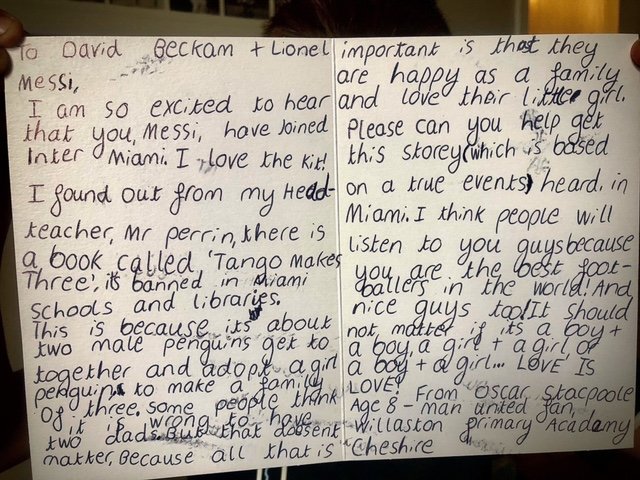 To David Beckam + Lionel
Messi,
I am so excited to hear
that you, Messi, have Joined
Inter Miami. I love the Kit!
I found out from my Head-
teacher, Mr perrin, there is
a book called, 'Tango Makes
Three', is banned in Miami
schools and libraries.
This is because its about
two male penguins get to
together and adopt a girl
penguin to make a family
of three. some people think
it is wrong to have
two dads. But that doosent
matter, Because all that is
important is that they
are happy as a family
and love their little girl.
Please can you help get
this storey (which is based
on a true events) heard. in
Miami. I think people will
listen to you guys because
you are the best foot-
ballers in the world! And
nice guys too! It should
not matter if its a boy +
a boy, a girl + a girl or
a boy + a girl... LOVE IS
LOVE! From oscar stacpoole
Age 8 - man united fan,
Willaston primary Academy
Cheshire